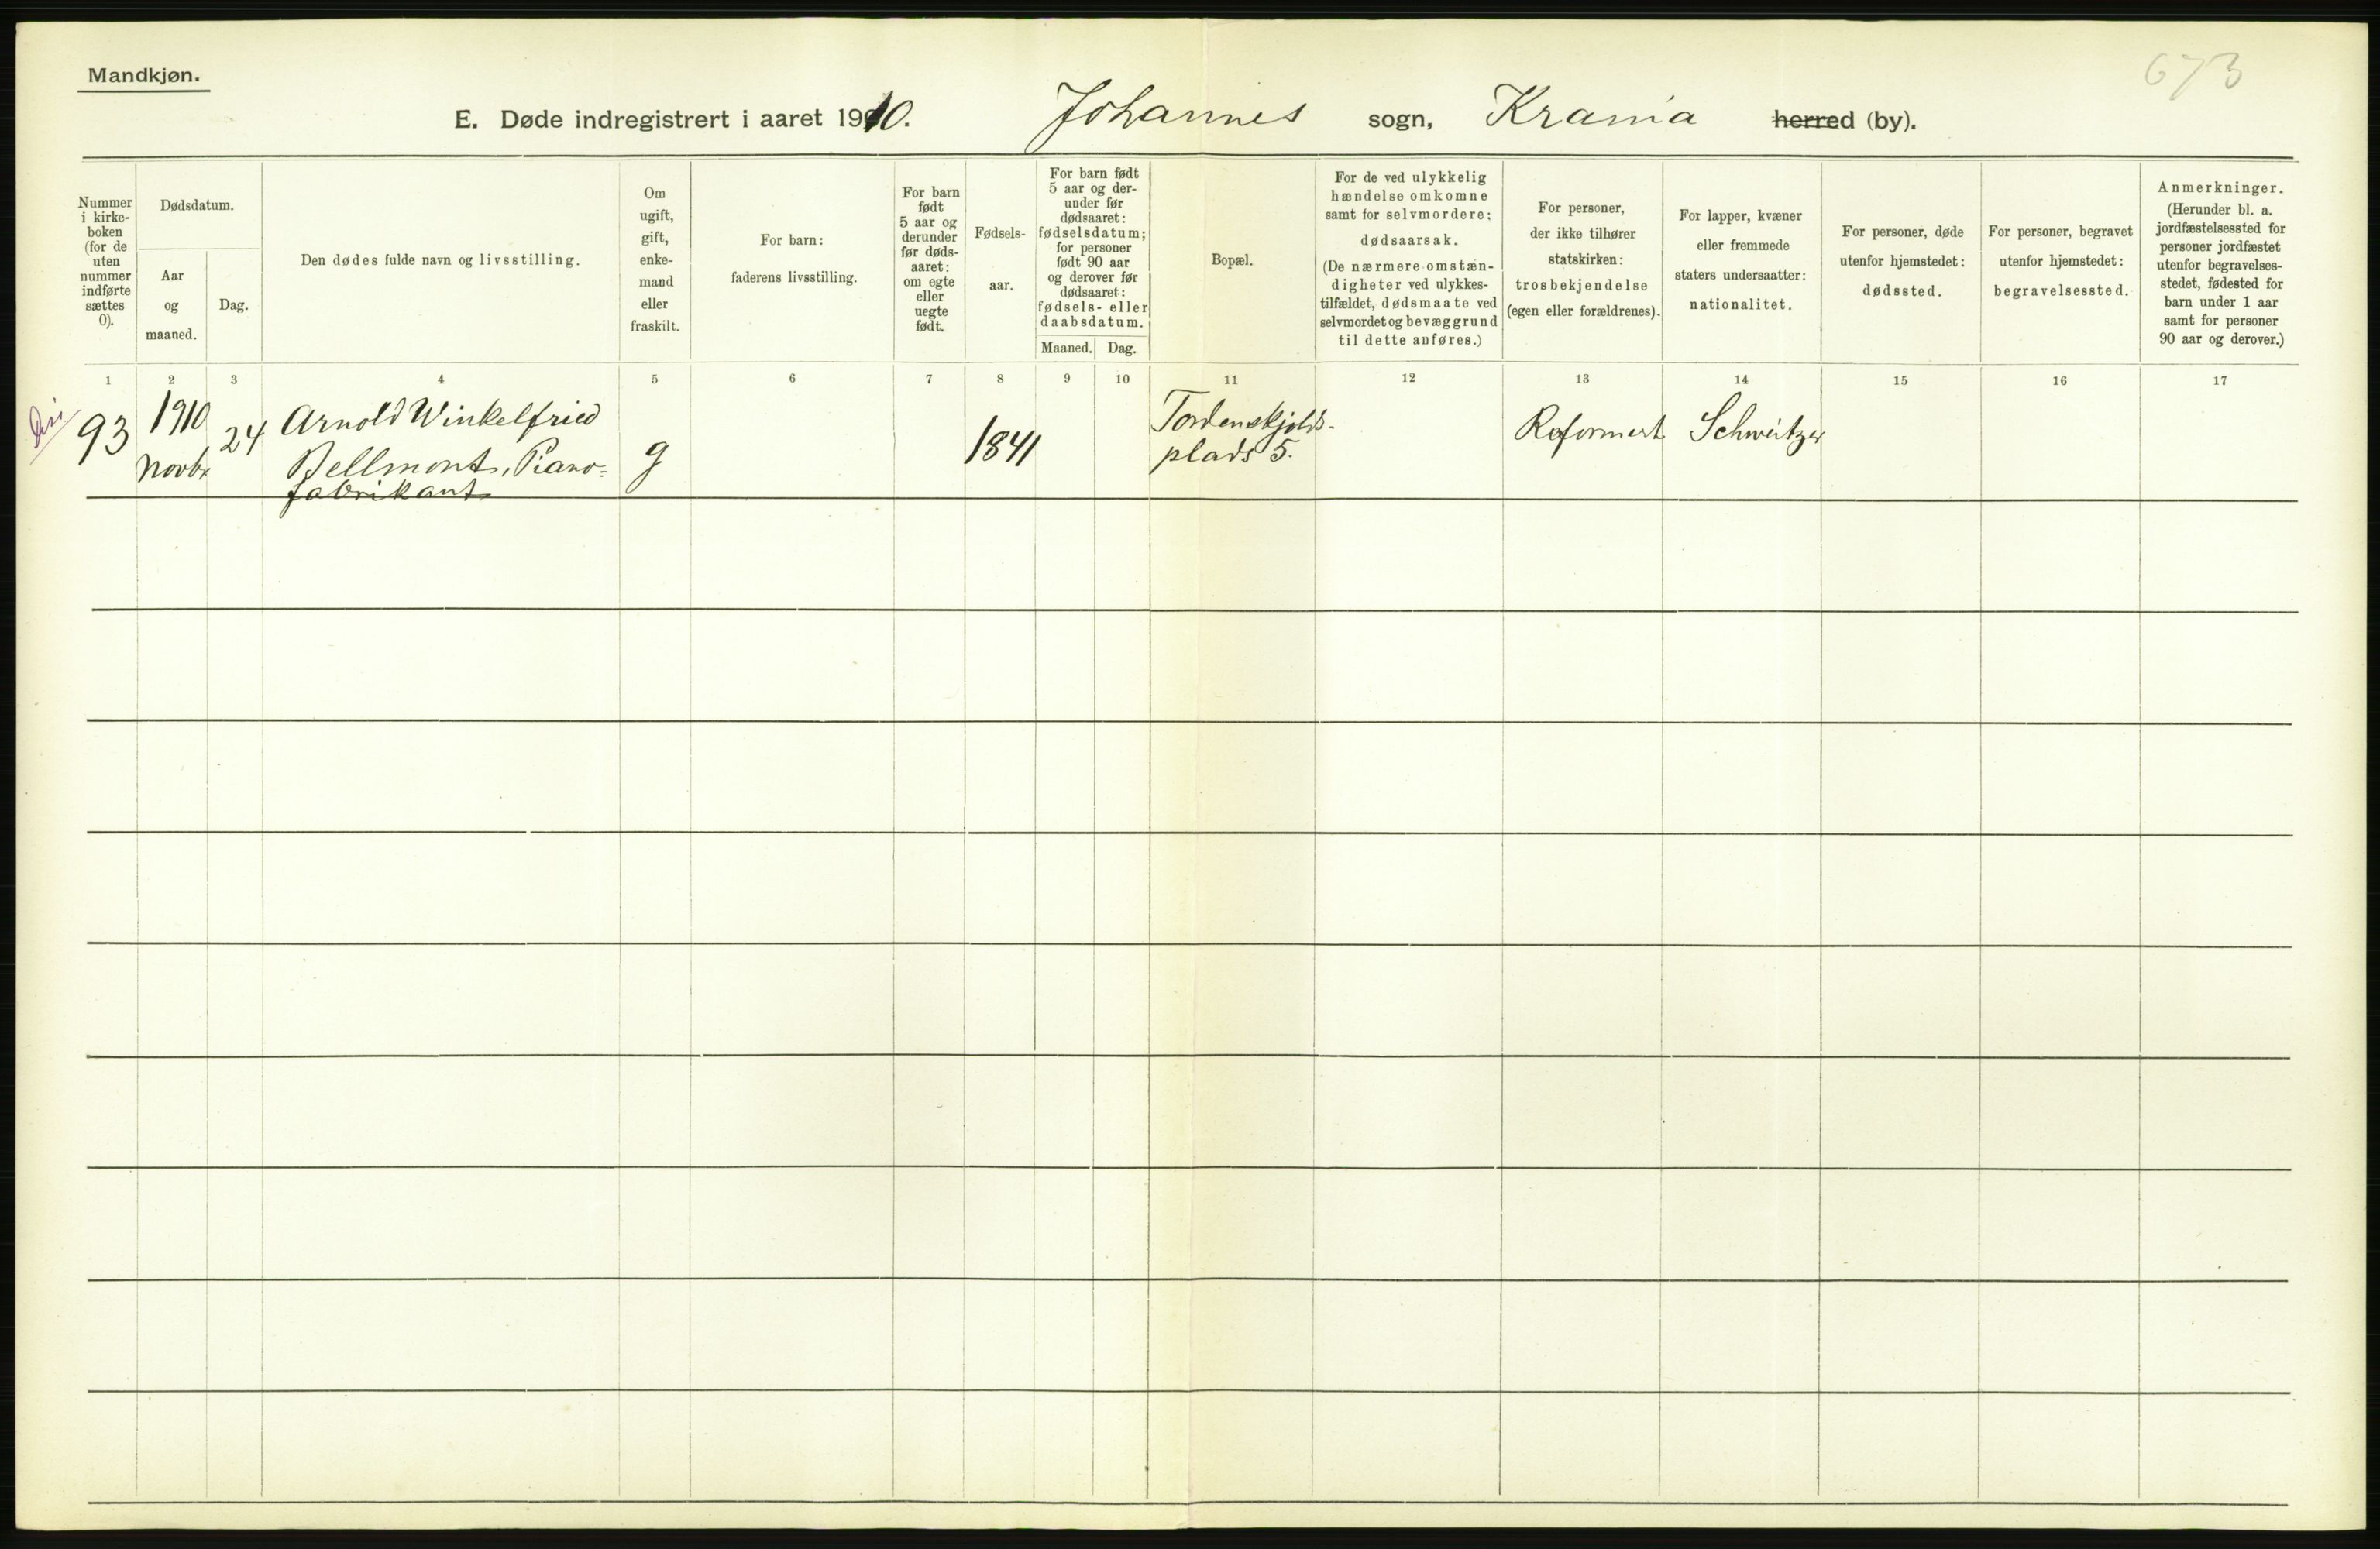 Mandkjøn.
673
E. Døde indregistrert i aaret 1910. Johannes sogn, Krania herred (by).
Nummer i kirkeboken (for de uten nummer indførte sættes 0).
Dødsdatum.
Aar og maaned.
Dag.
Den dødes fulde navn og livsstilling.
Om ugift, gift, enkemand eller fraskilt.
For barn: faderens livsstilling.
For barn født 5 aar og derunder før dødsaaret: om egte eller uegte født.
Fødselsaar.
For barn født 5 aar og derunder før dødsaaret: fødselsdatum; for personer født 90 aar og derover før dødsaaret: fødsels- eller daabsdatum.
Maaned. Dag.
Bopæl.
For de ved ulykkelig hændelse omkomne samt for selvmordere: dødsaarsak. (De nærmere omstændigheter ved ulykkestilfældet, dødsmaate ved selvmordet og bevæggrund til dette anføres.)
For personer, der ikke tilhører statskirken: trosbekjendelse (egen eller forældrenes).
For lapper, kvæner eller fremmede staters undersaatter: nationalitet.
For personer, døde utenfor hjemstedet: dødssted.
For personer, begravet utenfor hjemstedet: begravelsessted.
Anmerkninger. (Herunder bl. a. jordfæstelsessted for personer jordfæstet utenfor begravelsesstedet, fødested for barn under 1 aar samt for personer 90 aar og derover.)
1 2 3 4 5 6 7 8 9 10 11 12 13 14 15 16 17
93 1910 Novbr 24
Arnold Winkelfried
Bellmont, Piano-
fabrikant
g
1841
Tordenskjolds-
plads 5.
Reformert
Schweitzer